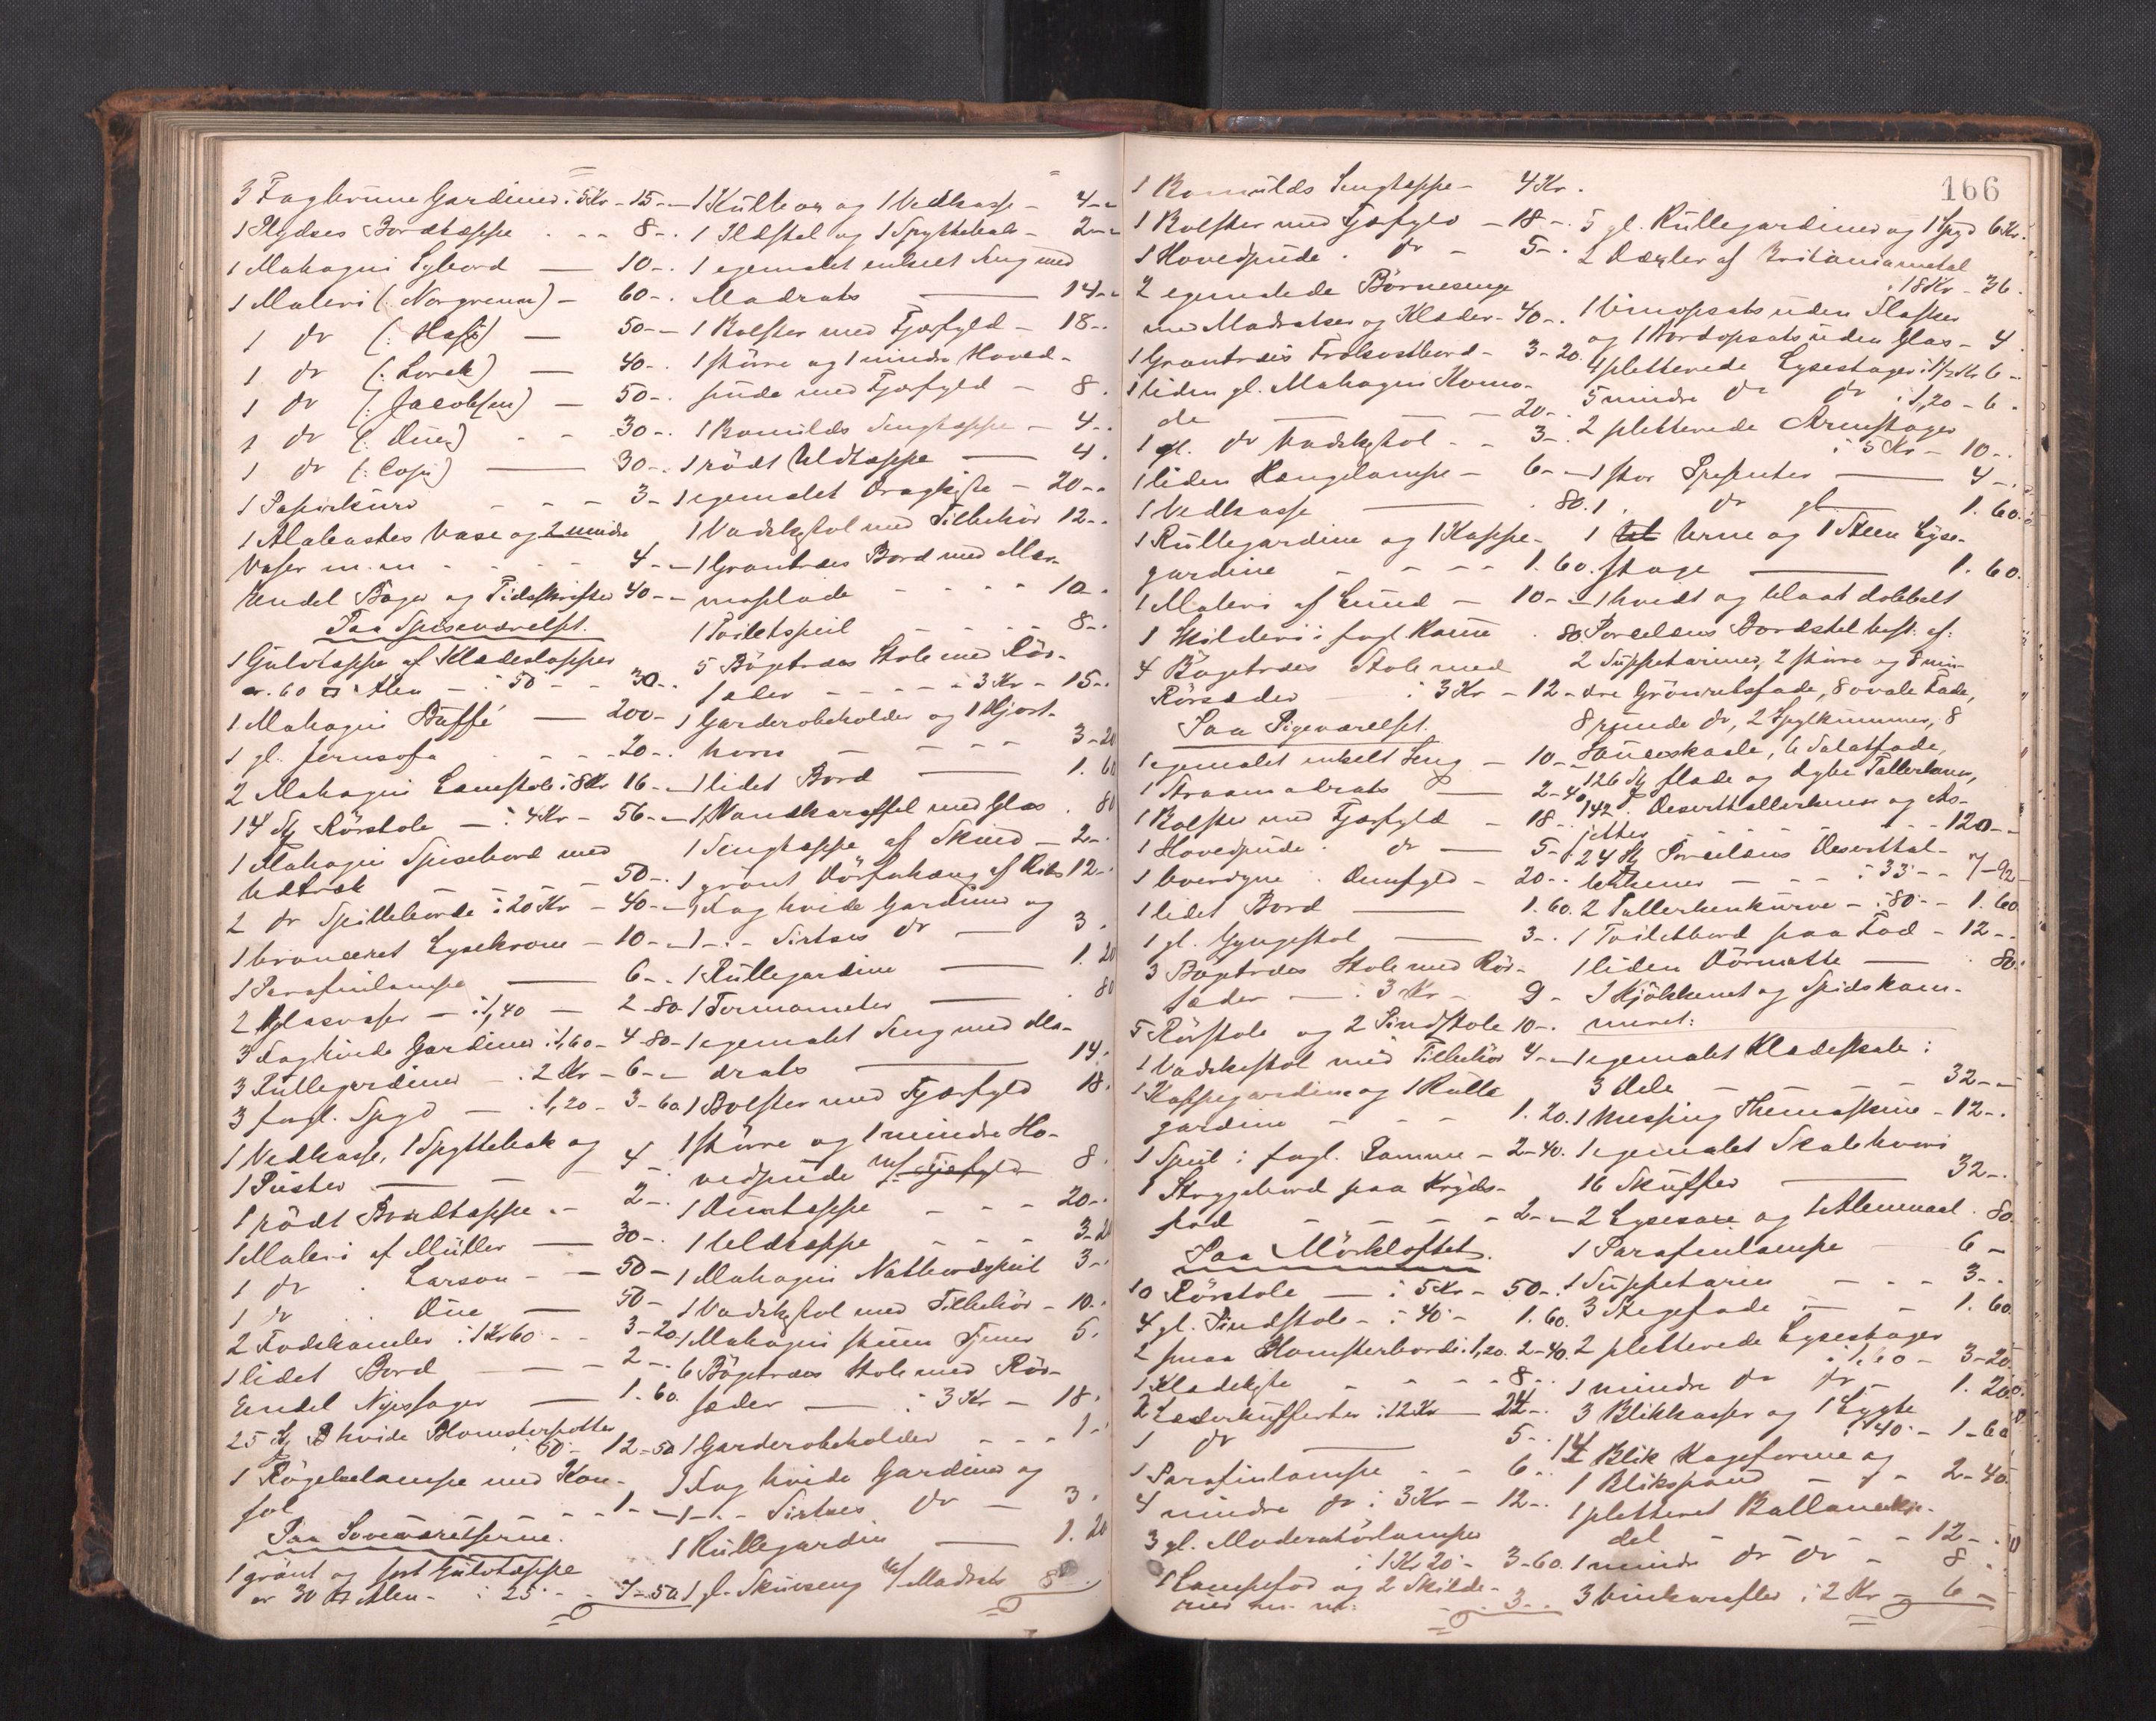 3 Fag brune Gardiner à 5 Kr - 15 -
1 Plydses Bordtæppe - - 8 -
1 Mahogni Sybord — 10 -
1 Maleri (: Norgrenn) - 60 -
1 do (: Hasp) — 50 -
1 do (: Lorck) — 40 -
1 do (: Jacobsen) — 50 -
1 do (: Due) - - 30 -
1 do (: Copi) — 30 -
1 Papirkurv - - - 3 -
1 Alabastes Vase og 2 mindre
Vaser m. m - - - 4 -
Endel Bøger og Tidsskrifter 40 -
Paa Spiseværelset.
1 Gulvtæppe af Klædeslapper
cr. 60 □ Alen - à 50 - - 30 -
1 Mahogni Buffé — 200 -
1 gl. Jernsofa - - - 20 -
2 Mahogni Lænstole à 8 Kr 16 -
14 St Rörstole — à 4 Kr - 56 -
1 Mahogni Spisebord med
Udtræk - - - 50 -
2 do Spilleborde à 20 Kr - 40 -
1 bronceret Lysekrone - 10 -
1 Parafinlampe — 6 -
2 Glasvaser - à 1,40 - 2 - 80
3 Fag hvide Gardiner à 1,60 - 4 - 80
3 Rullegardiner - à 2 Kr - 6 -
3 forgl. Spyd - à 1,20 - 3 - 60
1 Vedkasse, 1 Spyttebak og
1 Puster — 4 -
1 rödt Bordtæppe - 2 -
1 Maleri af Müller — 30 -
1 do . Larson - - 50 -
1 do . Due — 50 -
2 Fodskamler à 1 Kr 60 - - 3 - 20
1 lidet Bord - - 2 -
Endel Nipssager — 1. 60.
25 St hvide Blomsterpotter
à 50 - 12 - 50
1 Rögelselampe med Kon-
sol - - - 1 -
Paa Soveværelserne.
1 grönt og sort Gulvtæppe
cr 30 □ Alen - à 25 - - 7 - 50
1 Kulleox og 1 Vedkasse - 4 -
1 Ildstel og 1 Spyttebak - 2 -
1 egemalet enkelt Seng med
Madrats — 14 -
1 Bolster med Fjærfyld - 18 -
1 större og 1 mindre Hoved-
pude med Fjærfyld - 8.
1 Bomulds Sengtæppe - 4 -
1 rödt Uldtæppe — 4.
1 egemalet Dragkiste - 20 -
1 Vadskestol med Tilbehör 12 -
1 Grantræes Bord med Mar-
morplade - - - 10 -
1 Toiletspeil - - - 8 -
5 Bögetræes Stole med Rör-
sæder - - - à 3 Kr - 15 -
1 Garderobeholder og 1 Hjort-
horn - - - 3 - 20
1 lidet Bord — 1. 60
1 Vandkaraffel med Glas . 80
1 Sengtæppe af Skind - 2 -
1 grönt Dörforhæng af Rips 12 -
1 Fag hvide Gardiner og
1 - : - Sirtses do — 3.
1 Rullegardin — 1. 20
1 Termometer — . 80
1 egemalet Seng med Ma-
drats — 14.
1 Bolster med Fjærfyld 18.
1 större og 1 mindre Ho-
vedpude m/ Fjærfyld 8.
1 Duntæppe - - - 20 -
1 Uldtæppe - - - 3 - 20
1 Mahogni Natbordspeil 3 -
1 Vadskestol med Tilbehör - 10 -
1 Mahogni stum Tjener 5.
6 Bögetræes Stole med Rör-
sæder — à 3 Kr - 18.
1 Garderobeholder - - - 1 -
1 Fag hvide Gardiner og
1 - : - Sirtses do — 3.
1 Rullegardin — 1. 20
1 gl. Skuvseng m/ Madrats 8 -
166
1 Bomulds Sengtæppe - 4 Kr.
1 Bolster med Fjærfyld - 18 -
1 Hovedpude . do - 5 -
2 egemalede Börnesenge
med Madratser og Klæder - 40 -
1 Grantræes Frokostbord - 3 - 20.
1 liden gl. Mahogni Komo-
de - - - 20 -
1 gl. do Vadskestol - - 3 -
1 liden Hængelampe - 6 -
1 Vedkasse — . 80.
1 Rullegardin og 1 Kappe-
gardine - - - - 1. 60.
1 Maleri af Lund - 10 -
1 Skilderi i forgl. Ramme . 80.
4 Bögetræes Stole med
Rörsæder — à 3 Kr - 12 -
Paa Pigeværelset.
1 egemalet enkelt Seng - 10 -
1 Straamadrats — 2 - 40
1 Bolster med Fjærfyld - 18 -
1 Hovedpude . do — 5 -
1 Overdyne . Dunfyld - 20 -
1 lidet Bord — 1. 60.
1 gl. Gyngestol — 3 -
3 Bögetræes Stole med Rör-
sæder — à 3 Kr - 9 -
5 Rörstole og 2 Pindstole 10 -
1 Vadskestol med Tilbehör 4 -
1 Kappegardin og 1 Rulle
gardine - - - 1. 20.
1 Speil i forgl. Ramme - 2 - 40.
1 Strygebord paa Kryds-
fod - - - - 2 -
Paa Mörkloftet.
10 Rörstole — à 5 Kr - 50 -
4 gl. Pindstole - à 40 - 1. 60.
2 smaa Blomsterborde à 1,20. 2 - 40.
1 Klædekiste - - - 8 -
2 Læderkufferter à 12 Kr 24 -
1 do — 5 -
1 Parafinlampe - - 6 -
4 mindre do à 3 Kr - 12 -
3 gl. Moderatörlamper
à 1 Kr 20 - 3 - 60.
1 Lampefod og 2 Skilde-
rier m. m. - 3 -
5 gl. Rullegardiner og 1 Spyd 6 Kr.
2 Dæxler af Britaniametal
à 18 Kr - 36.
1 Vinopsats uden Flasker
og 1 Bordopsats uden Glas - 4.
4 pletterede Lysestager à 1½ Kr 6 -
5 mindre do do à 1,20 - 6 -
2 pletterede Armstager
à 5 Kr - 10 -
1 stor Presenter — 4 -
1 do gl. 1. 60.
1 Urne og 1 Steen Lyse-
stage — 1. 60.
1 hvidt og blaat dobbelt
Porcelæns Bordstel best. af:
2 Suppeteriner, 2 större og 8 min-
dre Grönsetsfade, 8 ovale Fade,
8 runde do, 2 Spylkummer, 8
Sauceskaale, 6 Salatfade,
126 St flade og dybe Tallerkener,
142 " Deserttallerkener og As-
jetter - - - - 120 -
24 St Porcelæns Deserttal-
lerkener - - - à 33 - - 7 - 92
2 Tallerkenkurve - à 80 - - 1. 60
1 Toiletbord paa Fod - 12 -
1 liden Dörmatte — . 80.
I Kjökkenet og Spidskam-
meret:
1 egemalet Klædeskab i
3 Dele - - - - 32 -
1 Messing Themaskine - 12 -
1 egemalet Skab hvori
16 Skuffer — 32 -
2 Lysesaxe og 1 Alenmaal . 80
1 Parafinlampe - 6 -
1 Suppeterin - - - 3 -
3 Stegefade - - - 1. 60.
2 pletterede Lysestager
à 1,60 - 3 - 20.
1 mindre do do - 1. 20
3 Blikkasser og 1 Lygte
à 40 - 1 - 60
14 Blik Kageforme og
1 Blikspand - - - 2 - 40.
1 pletteret
del - - - - 12 -
1 mindre do do - 8 -
3 Vinkarafler à 2 Kr - 6 -